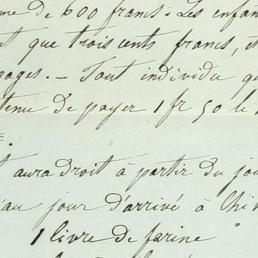 me de 600 francs : Les enfan
t que trois cents francs, et
gages. – Tout individu qu
tenu de payer 1 fr 50 le
t aura droit à partir du jou
'au jour d'arrivé à Chi
1 livre de farine